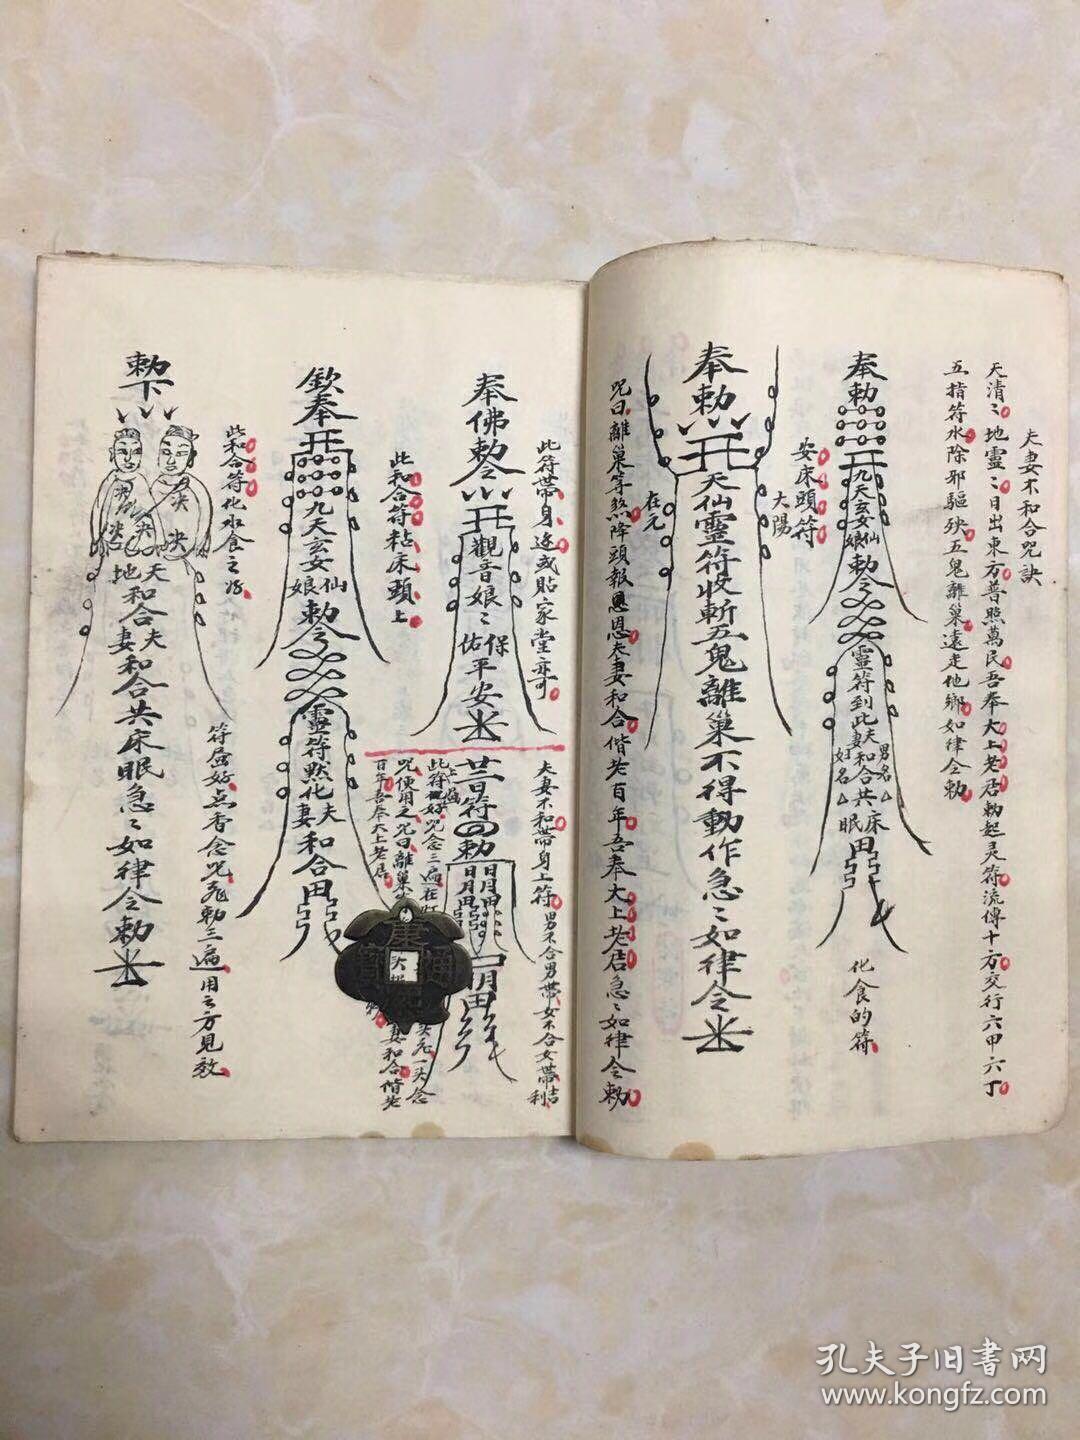 夫妻不和合咒訣
天清〻地靈〻日出東方普照萬民吾奉大上老君勅起灵符流傳十方交行六甲六丁
五指符水除邪驅殃五鬼離巢遠走他鄉如律令勅
奉勅
九天玄女仙娘勅令
靈符到此夫妻和合共床眠
男名
好名
化食的符
安床頭符
大陽
奉勅
天仙靈符收斬五鬼離巢不得動作急〻如律令
在元
咒曰離巢等煞降頭報恩恩夫妻和合偕老百年吾奉大上老君急〻如律令勅
此符帶身迩或貼家堂亦可
奉佛勅令
觀音娘〻保佑平安
夫妻不和帶身上符
男不合男帶女不合女帶吉利
日符
勅
日月
咒念三遍在
咒使用之咒曰離巢
百年吾奉大上老君
妻和合偕老
此和合符粘床頭上
欽奉
九天玄女仙娘勅令
靈符然化夫妻和合
此和合符化水食之好
符畐好点香念咒死勅三遍用之方見效
勅下
天地和合夫妻和合共床眠急〻如律令勅
孔夫子旧書网
www.kongfz.com